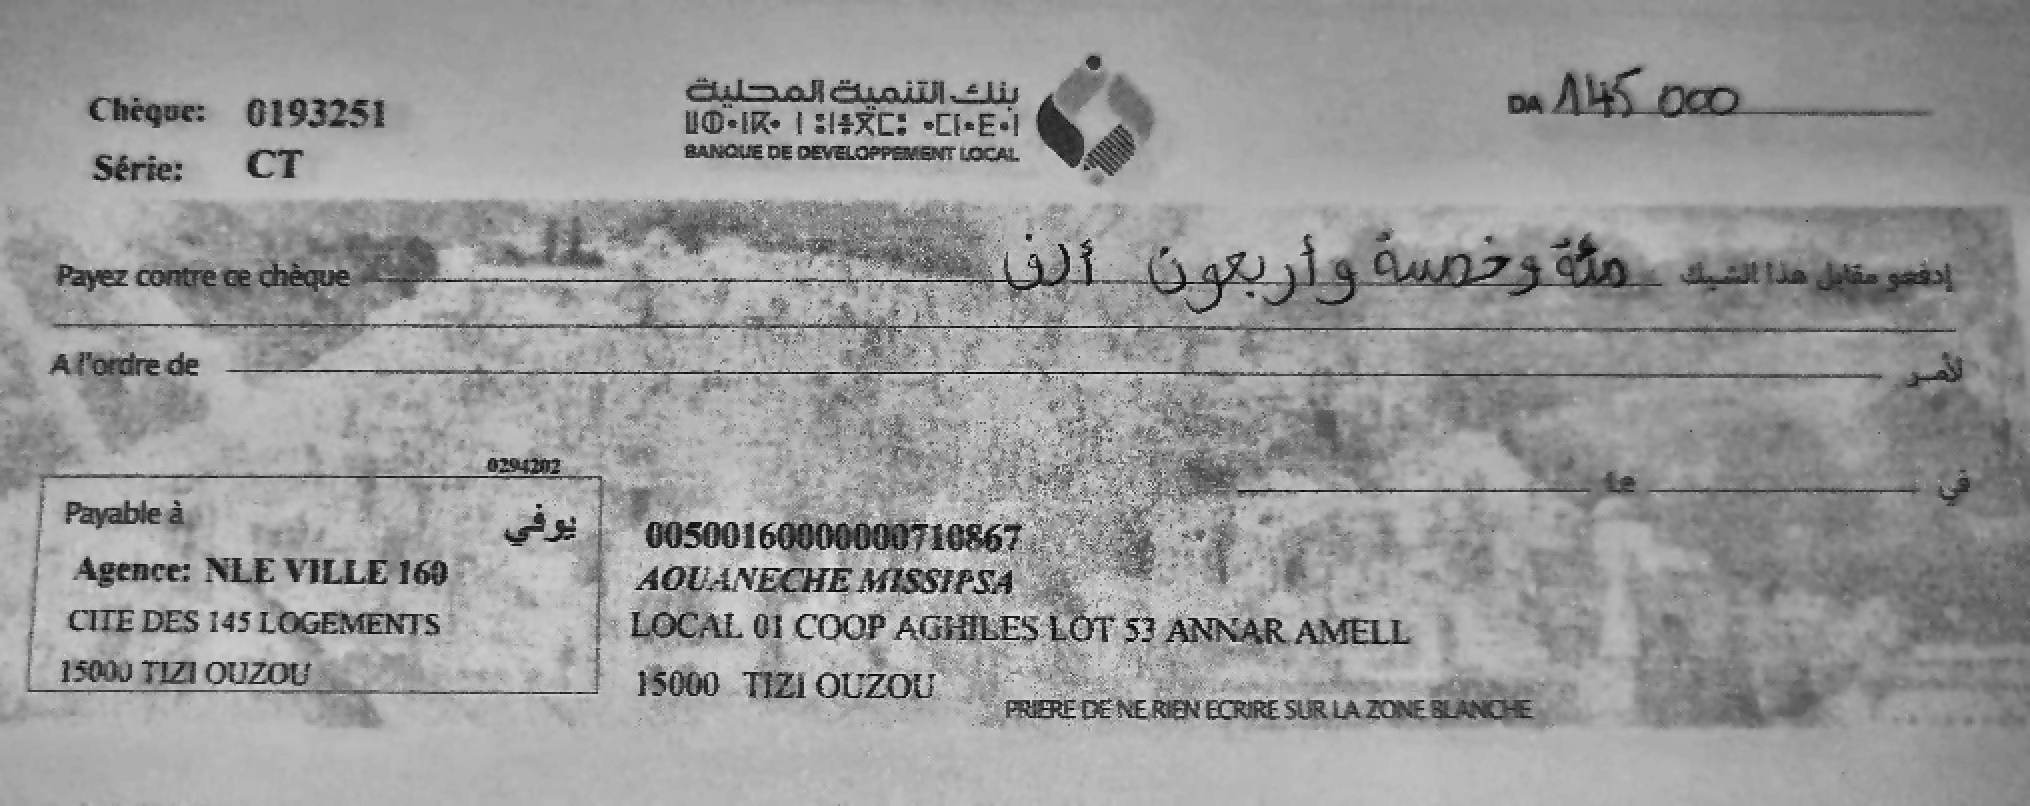 Chèque: 0193251
Série: CT
بنك التنمية المحلية
BANQUE DE DEVELOPPEMENT LOCAL
DA 145 000
Payez contre ce chèque مئة وخمسة وأربعون ألف إدفعو مقابل هذا الشيك
A l'ordre de لأمر
0294202
Le في
Payable à يوفي
Agence: NLE VILLE 160
CITE DES 145 LOGEMENTS
15000 TIZI OUZOU
00500160000000710867
AOUANECHE MISSIPSA
LOCAL 01 COOP AGHILES LOT 53 ANNAR AMELL
15000 TIZI OUZOU
PRIERE DE NE RIEN ECRIRE SUR LA ZONE BLANCHE